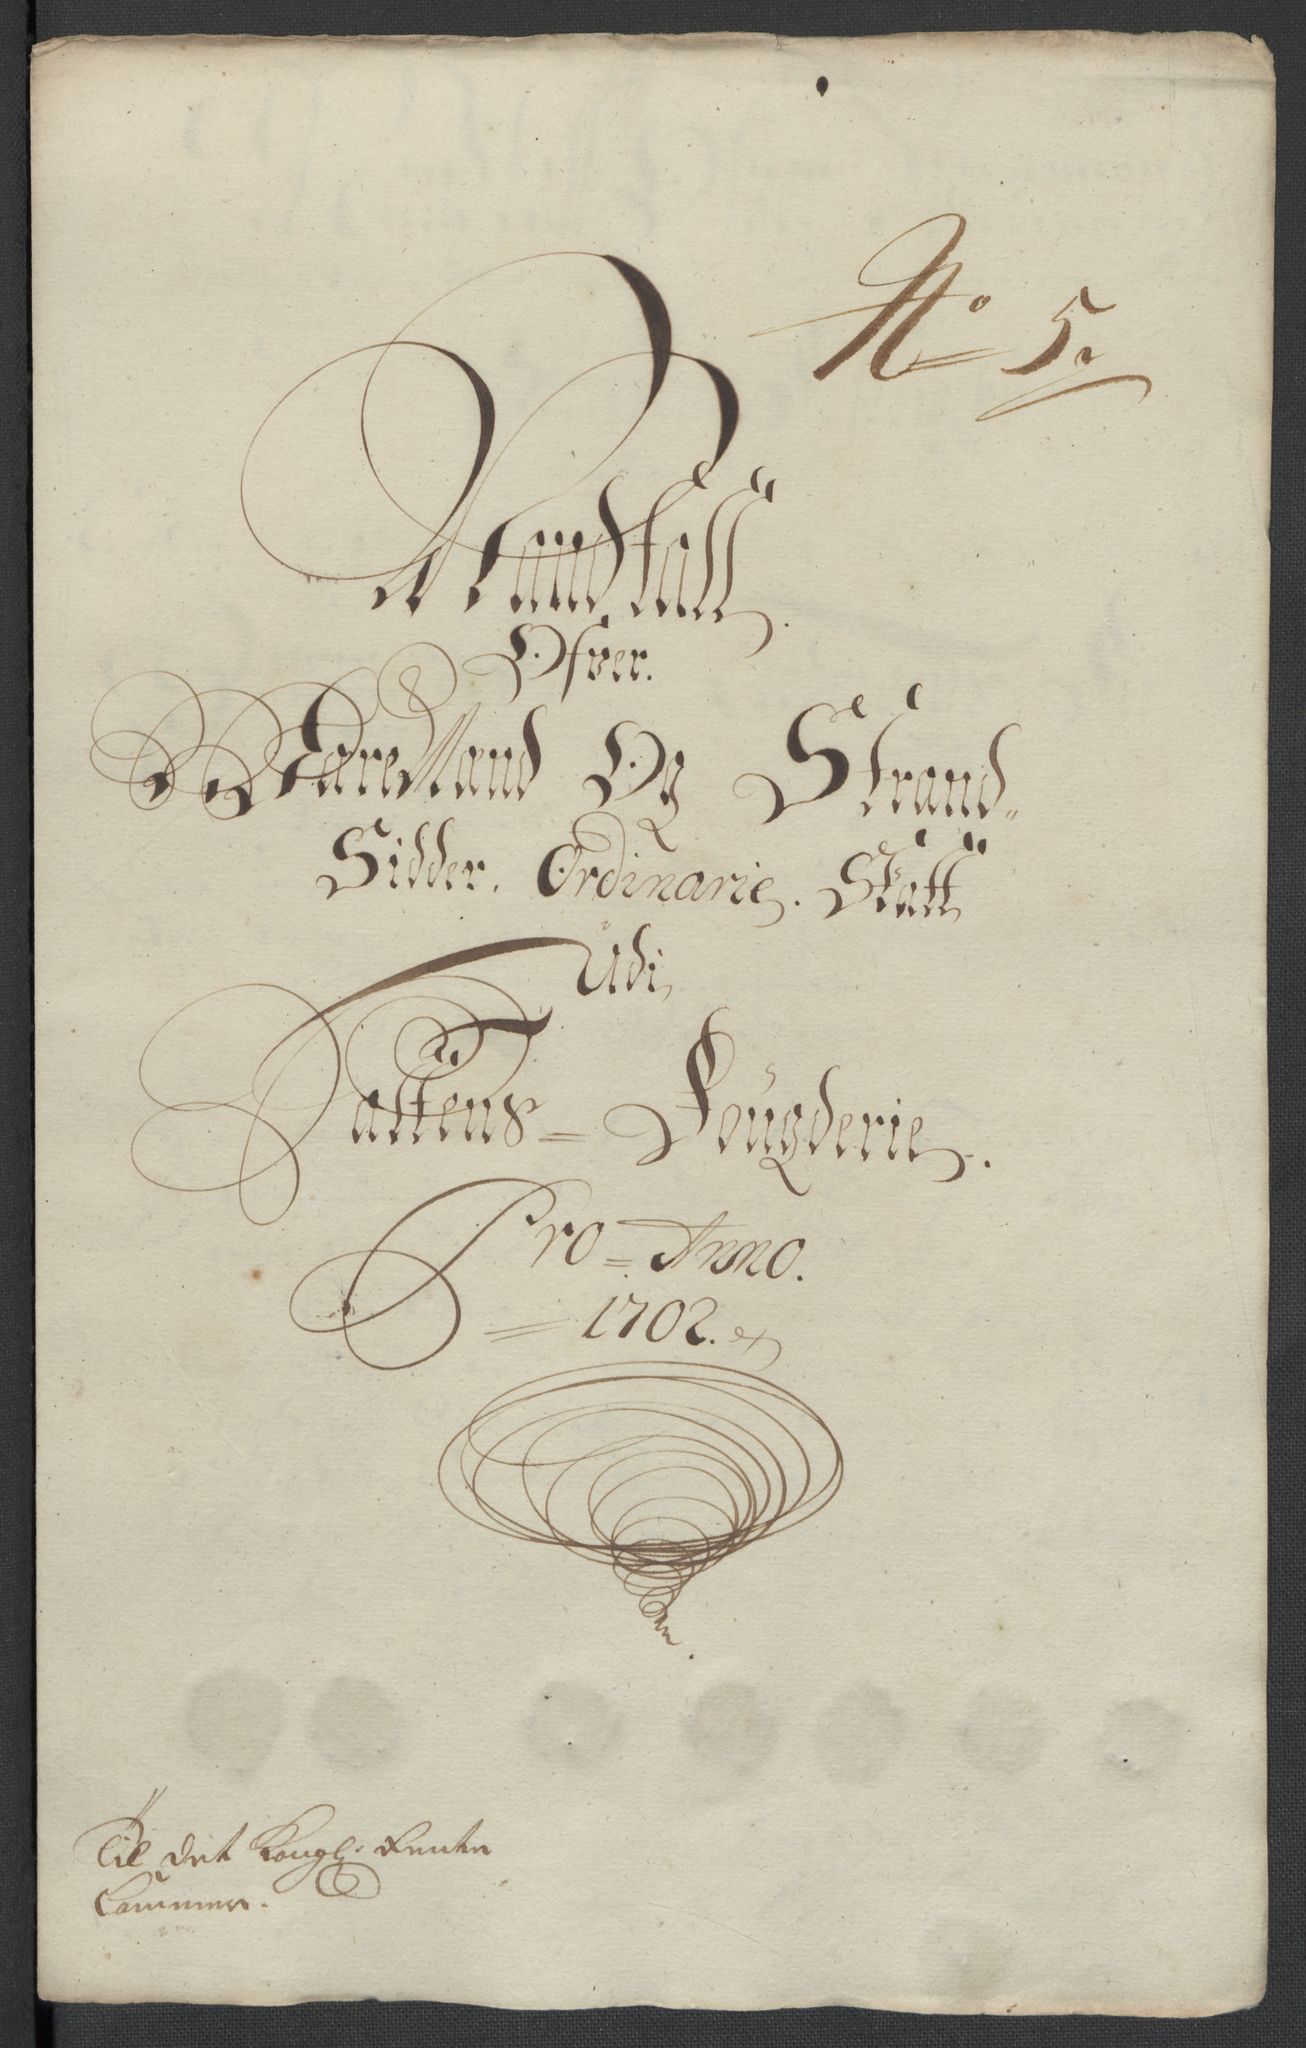 No 5.
Mandtall
Ofver.
Waremænd Og Strand=
Sidder. Ordinarie. Skatt
Udi
Saltens= Fougderie.
Pro= Anno.
= 1702.
Til det Kongl: Rente
Cammer.